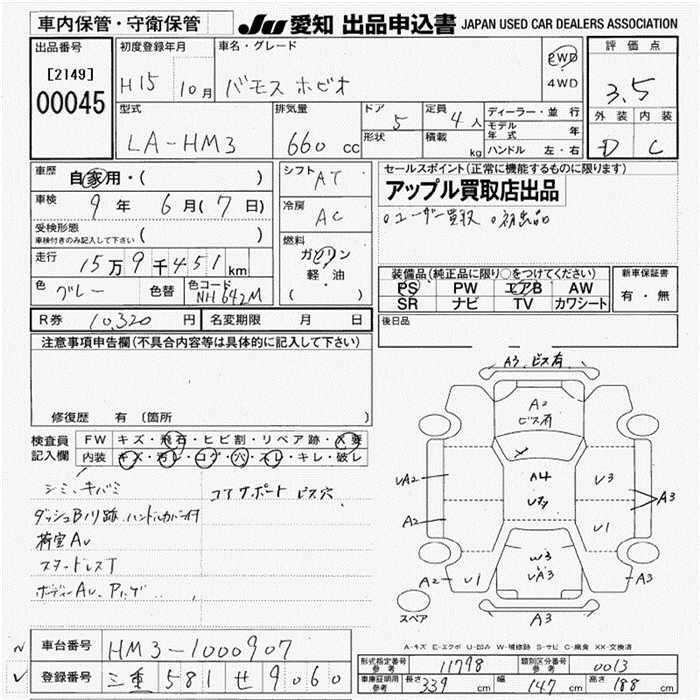 車内保管・守衛保管 JU 愛知 出品申込書 JAPAN USED CAR DEALERS ASSOCIATION
出品番号 [2149] 00045
初度登録年月 H15 10月
車名・グレード バモス ホビオ
2WD
4WD
評価点 3.5
外装 内装
D C
型式 LA-HM3
排気量 660 cc
ドア 5
形状
定員 4人
積載 kg
ディーラー・並行
モデル年式 年
ハンドル 左・右
車歴 自家用・( )
車検 9年 6月(7日)
受検形態 車検付きのみ記入して下さい ( )
走行 15万9千451km
色 グレー 色替 色コード NH642M
シフト AT
冷房 AC
燃料 ガソリン
軽・油
( )
セールスポイント(正常に機能するものに限ります)
アップル買取店出品
○ユーザー買取 ○初出品
装備品(純正品に限り○をつけてください)
PS PW エアB AW
SR ナビ TV カワシート
新車保証書
有・無
R券 10,320円 名変期限 月 日
後日品
注意事項申告欄(不具合内容等は具体的に記入して下さい)
修復歴 有 〔箇所 〕
検査員記入欄 FW キズ・飛石・ヒビ割・リペア跡・X要
内装 キズ・汚レ・コゲ・穴・スレ・キレ・破レ
シミ、キバミ
コアサポート ビス穴
ダッシュBノリ跡、ハンドルカバー付
荷室AU
スタッドレスT
A3、ビス有
A2
ビス有
A4
UA2
U3
A3
A2
U1
W3
UA3
A2
U1
A3
A3
スペア
A-キズ E-エクボ U-凹み W-補修跡 S-サビ C-腐食 XX-交換済
車台番号 HM3-1000907
登録番号 三重 581 せ 9060
形式指定番号 参考 11798 類別区分番号 参考 0013
車庫証明用 参考 長さ 339 cm 幅 147 cm 高さ 188 cm